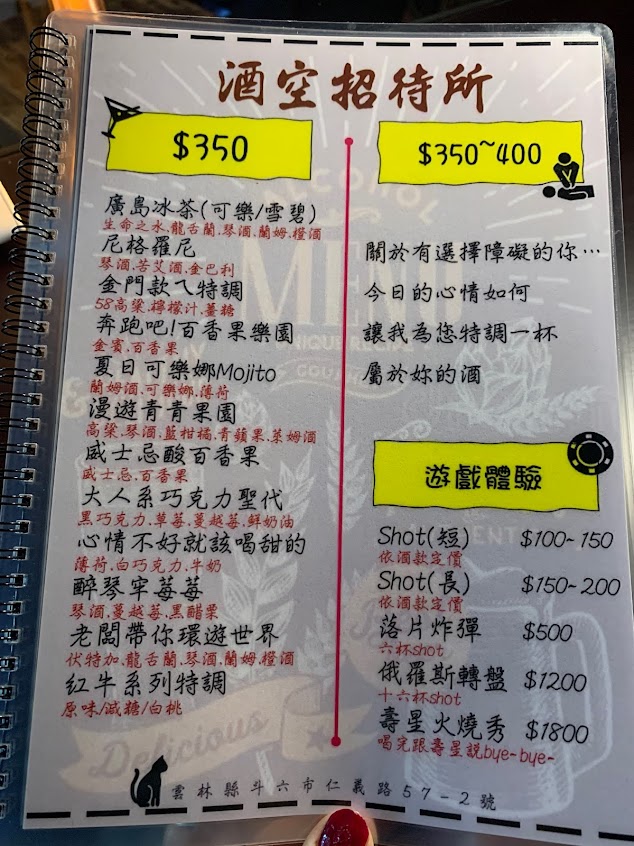 酒空招待所
$350
廣島冰茶(可樂/雪碧)
生命之水.龍舌蘭.琴酒.蘭姆.橙酒
尼格羅尼
琴酒.苦艾酒.金巴利
金門款ㄟ特調
58高粱.檸檬汁.薑糖
奔跑吧!百香果樂園
金賓.百香果
夏日可樂娜Mojito
蘭姆酒.可樂娜.薄荷
漫遊青青果園
高粱.琴酒.藍柑橘.青蘋果.萊姆酒
威士忌酸百香果
威士忌.百香果
大人系巧克力聖代
黑巧克力.草莓.蔓越莓.鮮奶油
心情不好就該喝甜的
薄荷.白巧克力.牛奶
醉琴牢莓莓
琴酒.蔓越莓.黑醋栗
老闆帶你環遊世界
伏特加.龍舌蘭.琴酒.蘭姆.橙酒
紅牛系列特調
原味/減糖/白桃
$350~400
關於有選擇障礙的你…
今日的心情如何
讓我為您特調一杯
屬於妳的酒
遊戲體驗
Shot(短) $100-150
依酒款定價
Shot(長) $150-200
依酒款定價
落片炸彈 $500
六杯shot
俄羅斯轉盤 $1200
十六杯shot
壽星火燒秀 $1800
喝完跟壽星說bye-bye-
ALCOHOL
MENU
UNIQUE RECIPE
GOU
Delicious
雲林縣斗六市仁義路57-2號